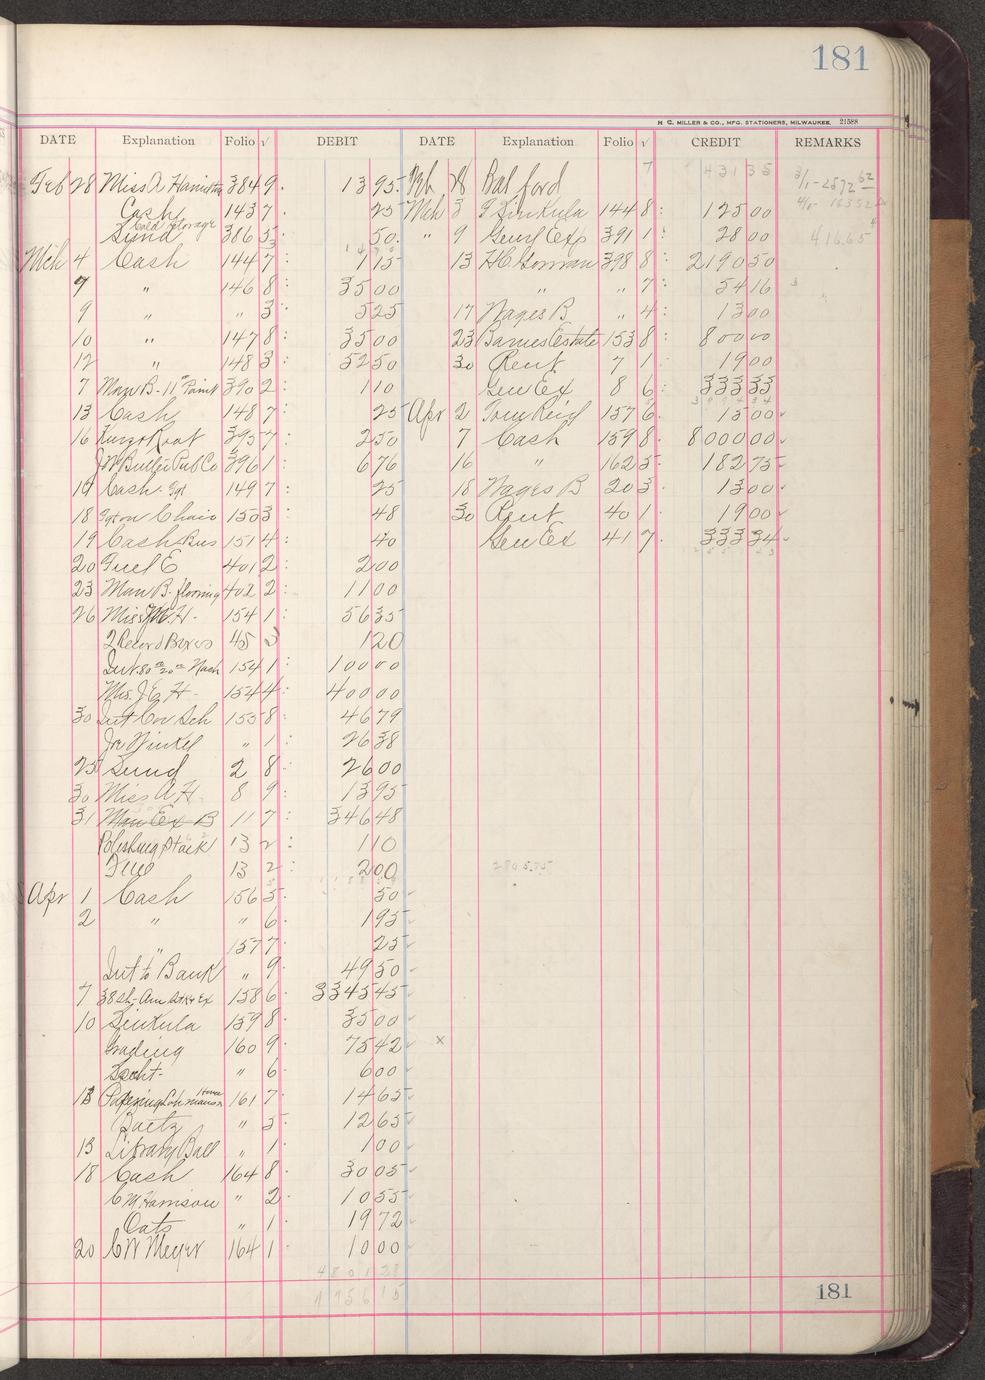 181
H. C. MILLER & CO., MFG. STATIONERS, MILWAUKEE. 21588
DATE Explanation Folio √ DEBIT DATE Explanation Folio √ CREDIT REMARKS
Feb 28 Miss A 384 9 13 95 Feb 28 Bal ford 7 431 35 3/1-2572 62
Cash 143 7 25 Mch 3 J Sinkula 144 8 125 00
Cold Storage
Sund 386 5 50 " 9 Genl Exp 391 1 28 00 416.65
Mch 4 Cash 144 7 1 15 13 H C Gorman 398 8 2190 50
7 " 146 8 35 00 " " 7 54 16
9 " " 3 5 25 17 Wages B " 4 13 00
10 " 147 8 35 00 23 Barnes Estate 153 8 80 00
12 " 148 3 52 50 30 Rent 7 1 19 00
7 Man B - 11" Paint 390 2 1 10 Gen Ex 8 6 333 33
13 Cash 148 7 25 Apr 2 Tom Reid 157 6 15 00
16 395 7 2 50 7 Cash 159 8 8000 00
Pub Co 396 1 6 76 16 " 162 5 182 75
14 Cash 149 7 25 18 Wages B 20 3 13 00
18 Chair 150 3 48 30 Rent 40 1 19 00
19 Cash Bus 151 4 40 Gen Ex 41 7 333 34
20 Fuel E 401 2 2 00
23 Man B. flooring 402 2 11 00
26 Miss M. H. 154 1 56 35
2 Record Boxes 45 3 1 20
154 1 100 00
Mrs. J E H - 154 4 400 00
30 Int Con Sch 155 8 46 79
Jno Winkel " 1 26 38
25 Sund 2 8 26 00
30 Miss A H. 8 9 13 95
31 Man Ex B 11 7 346 48
Polishing Stock 13 2 1 10
Fuel 13 2 2 00 2805.75
Apr 1 Cash 156 5 50
2 " " 6 1 95
" 157 7 25
Int to Bank " 9 49 50
7 38 Sh - Am 158 6 3345 45
10 Sinkula 159 8 35 00
Grading 160 9 75 42 x
" 6 6 00
13 161 7 14 65
Baetz " 5 12 65
13 Library Ball " 1 1 00
18 Cash 164 8 30 05
C M Harrison " 2 10 55
Oats " 1 19 72
20 C W Meyer 164 1 10 00
4801 28
181